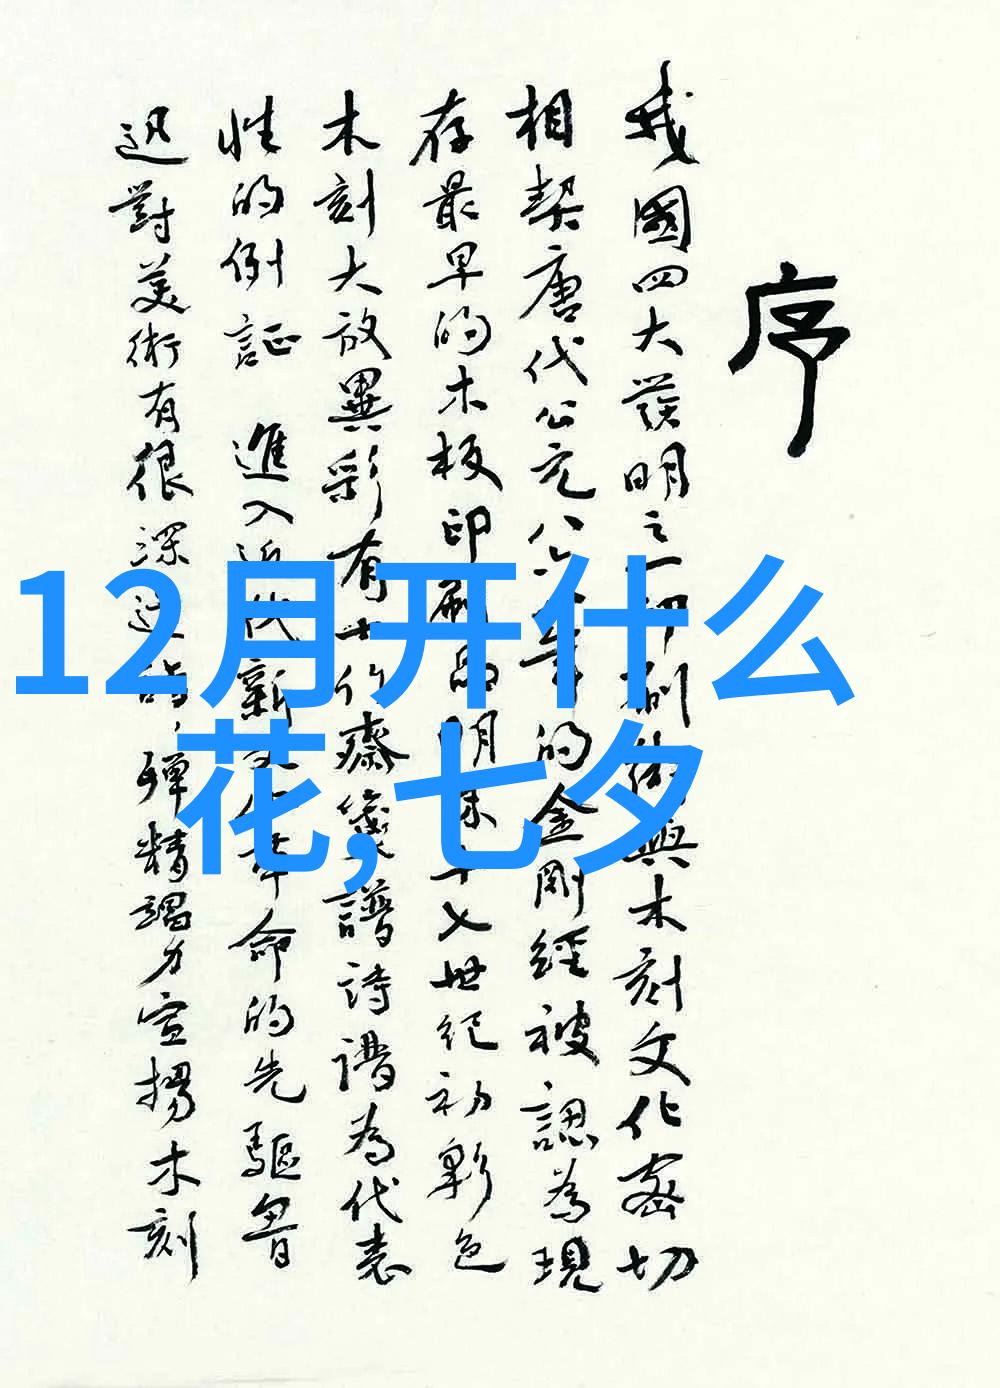 序
我國四大發明之一印刷術與木刻文化密切
相契唐代公元八六八年的金剛經被認為現
存最早的木板印刷品明末十七世紀初彩色
木刻大放異彩有十竹齋箋譜詩譜為代表
性的例証 進入近代新文化革命的先驅魯
迅對美術有很深造詣，殫精竭力宣揚木刻
12月开什么
花,七夕